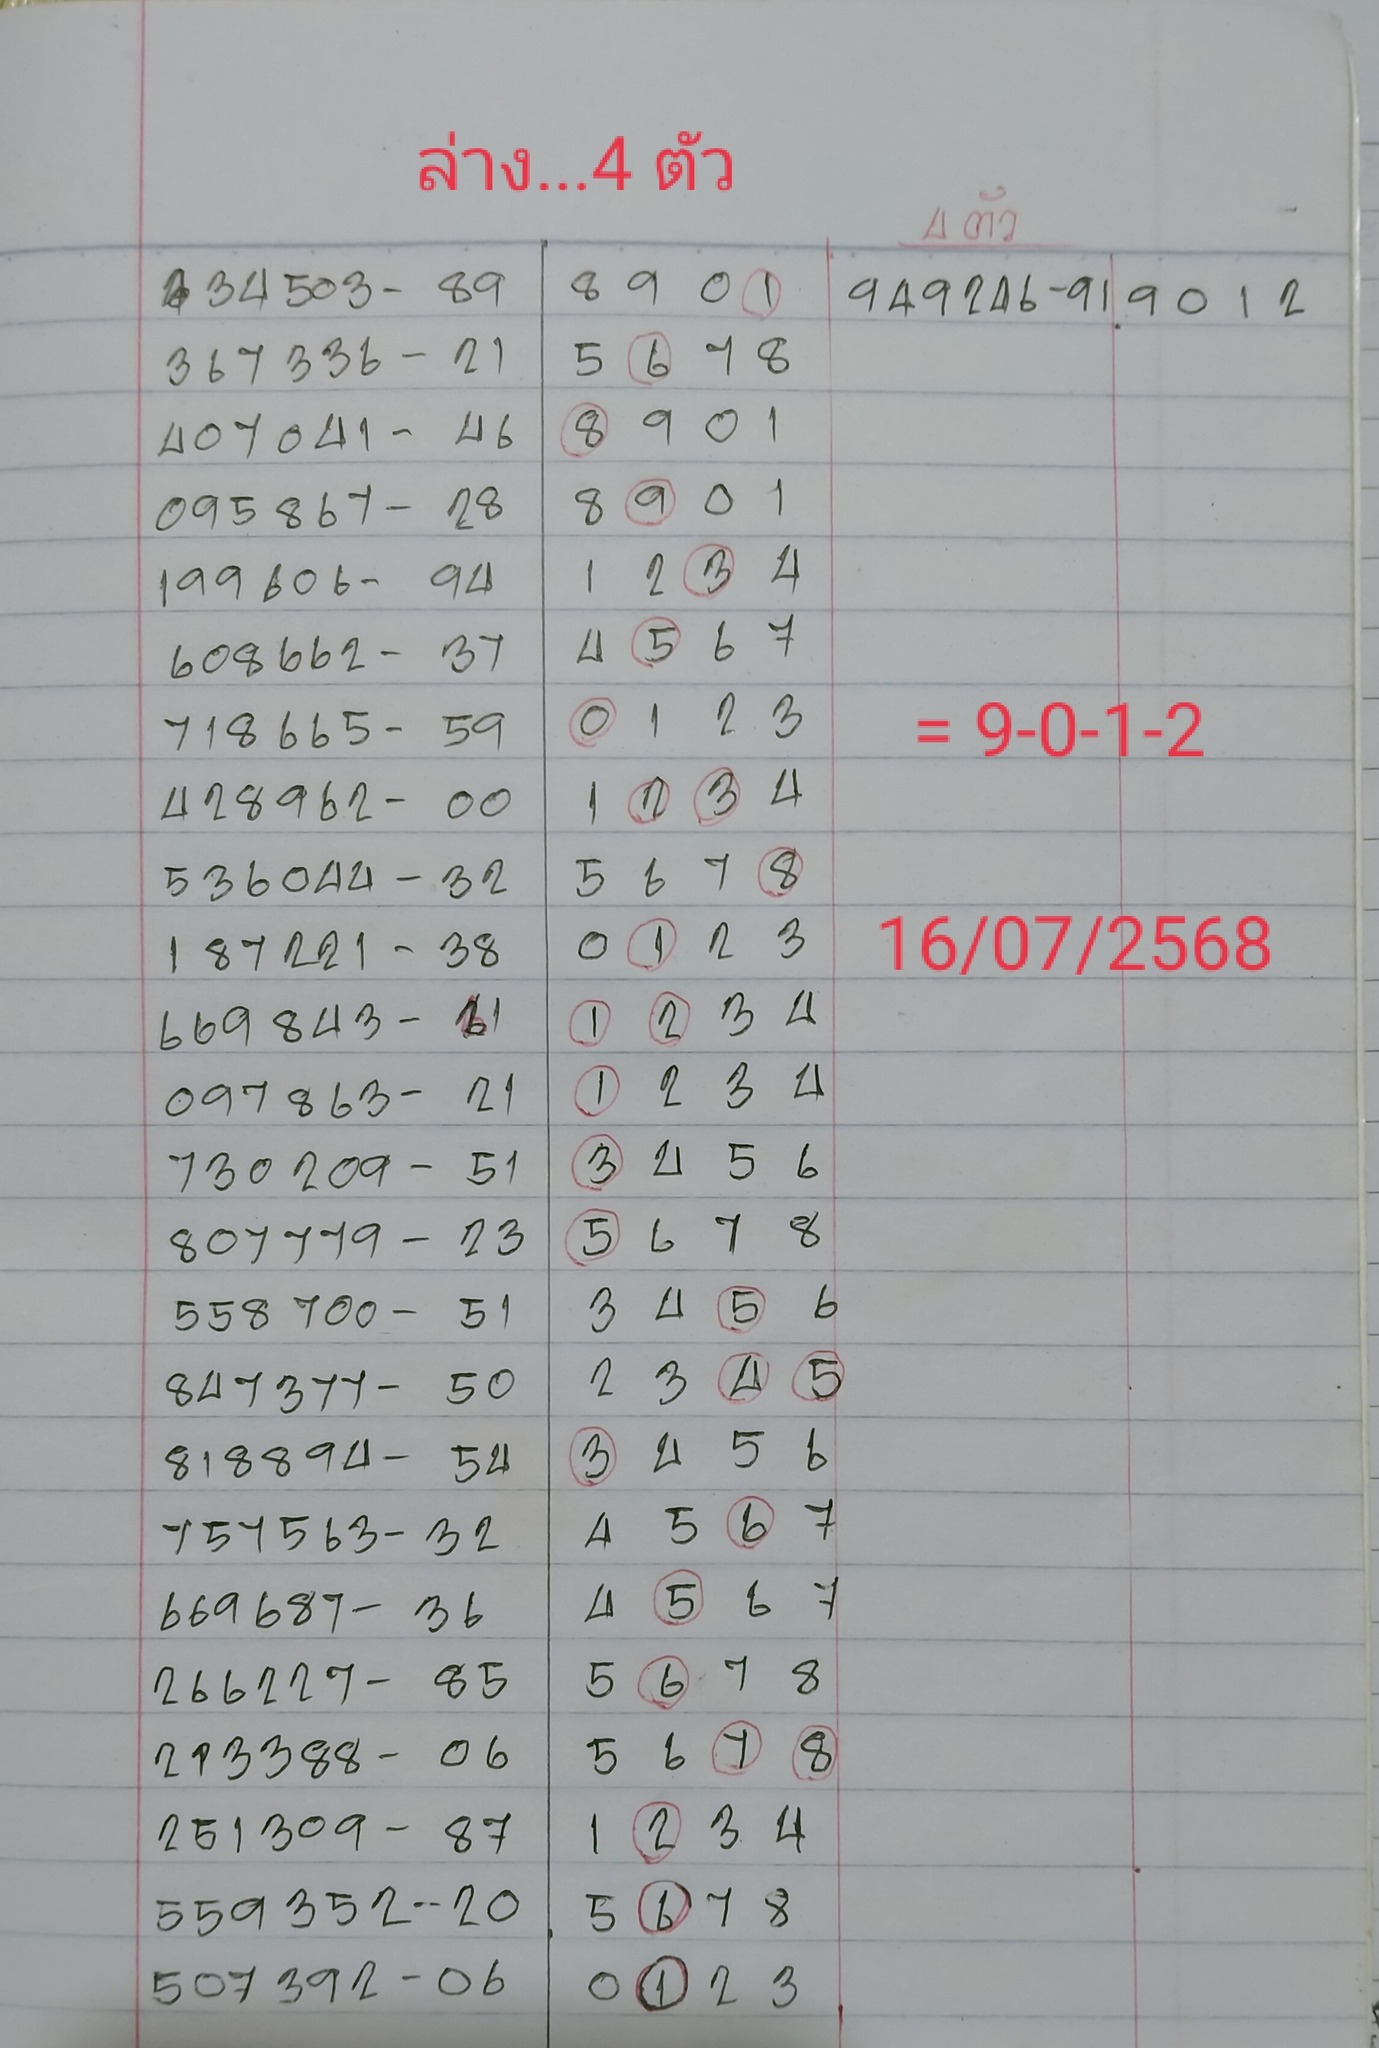 ล่าง...4 ตัว
4 ตัว
434503- 89 8 9 0 1 949246-91 9 0 1 2
367336- 21 5 6 7 8
407041- 46 8 9 0 1
095867- 28 8 9 0 1
199606- 94 1 2 3 4
608662- 37 4 5 6 7
718665- 59 0 1 2 3
= 9-0-1-2
428962- 00 1 2 3 4
536044- 32 5 6 7 8
187221- 38 0 1 2 3
16/07/2568
669843- 61 1 2 3 4
097863- 21 1 2 3 4
730209- 51 3 4 5 6
807779- 23 5 6 7 8
558700- 51 3 4 5 6
847377- 50 2 3 4 5
818894- 54 3 4 5 6
757563- 32 4 5 6 7
669687- 36 4 5 6 7
266227- 85 5 6 7 8
213388- 06 5 6 7 8
251309- 87 1 2 3 4
559352--20 5 6 7 8
507392-06 0 1 2 3